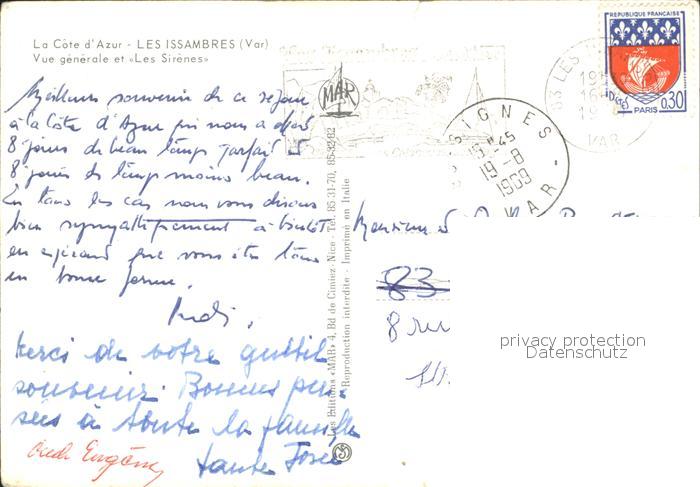 La Côte d'Azur - LES ISSAMBRES (Var)
Vue générale et «Les Sirènes»
REPUBLIQUE FRANÇAISE
PARIS 0,30
MAR
SIGNES
19-8
1969
VAR
VAR
Meilleur souvenir de ce séjour
à la Côte d'Azur qui nous a
8 jours de beau temps parfait
8 jours de temps moins beau.
En tous les cas nous vous disons
bien sympathiquement à bientôt
en espérant que vous êtes tous
en bonne forme.
Merci de votre gentil
souvenir. Bonnes pen-
sées à toute la famille
tante Josée
Les Editions «MAR» 4, Bd de Cimiez - Nice - Tél. 85-31-70, 85-32-82
Reproduction interdite - Imprimé en Italie
Monsieur
83
8 rue
privacy protection
Datenschutz